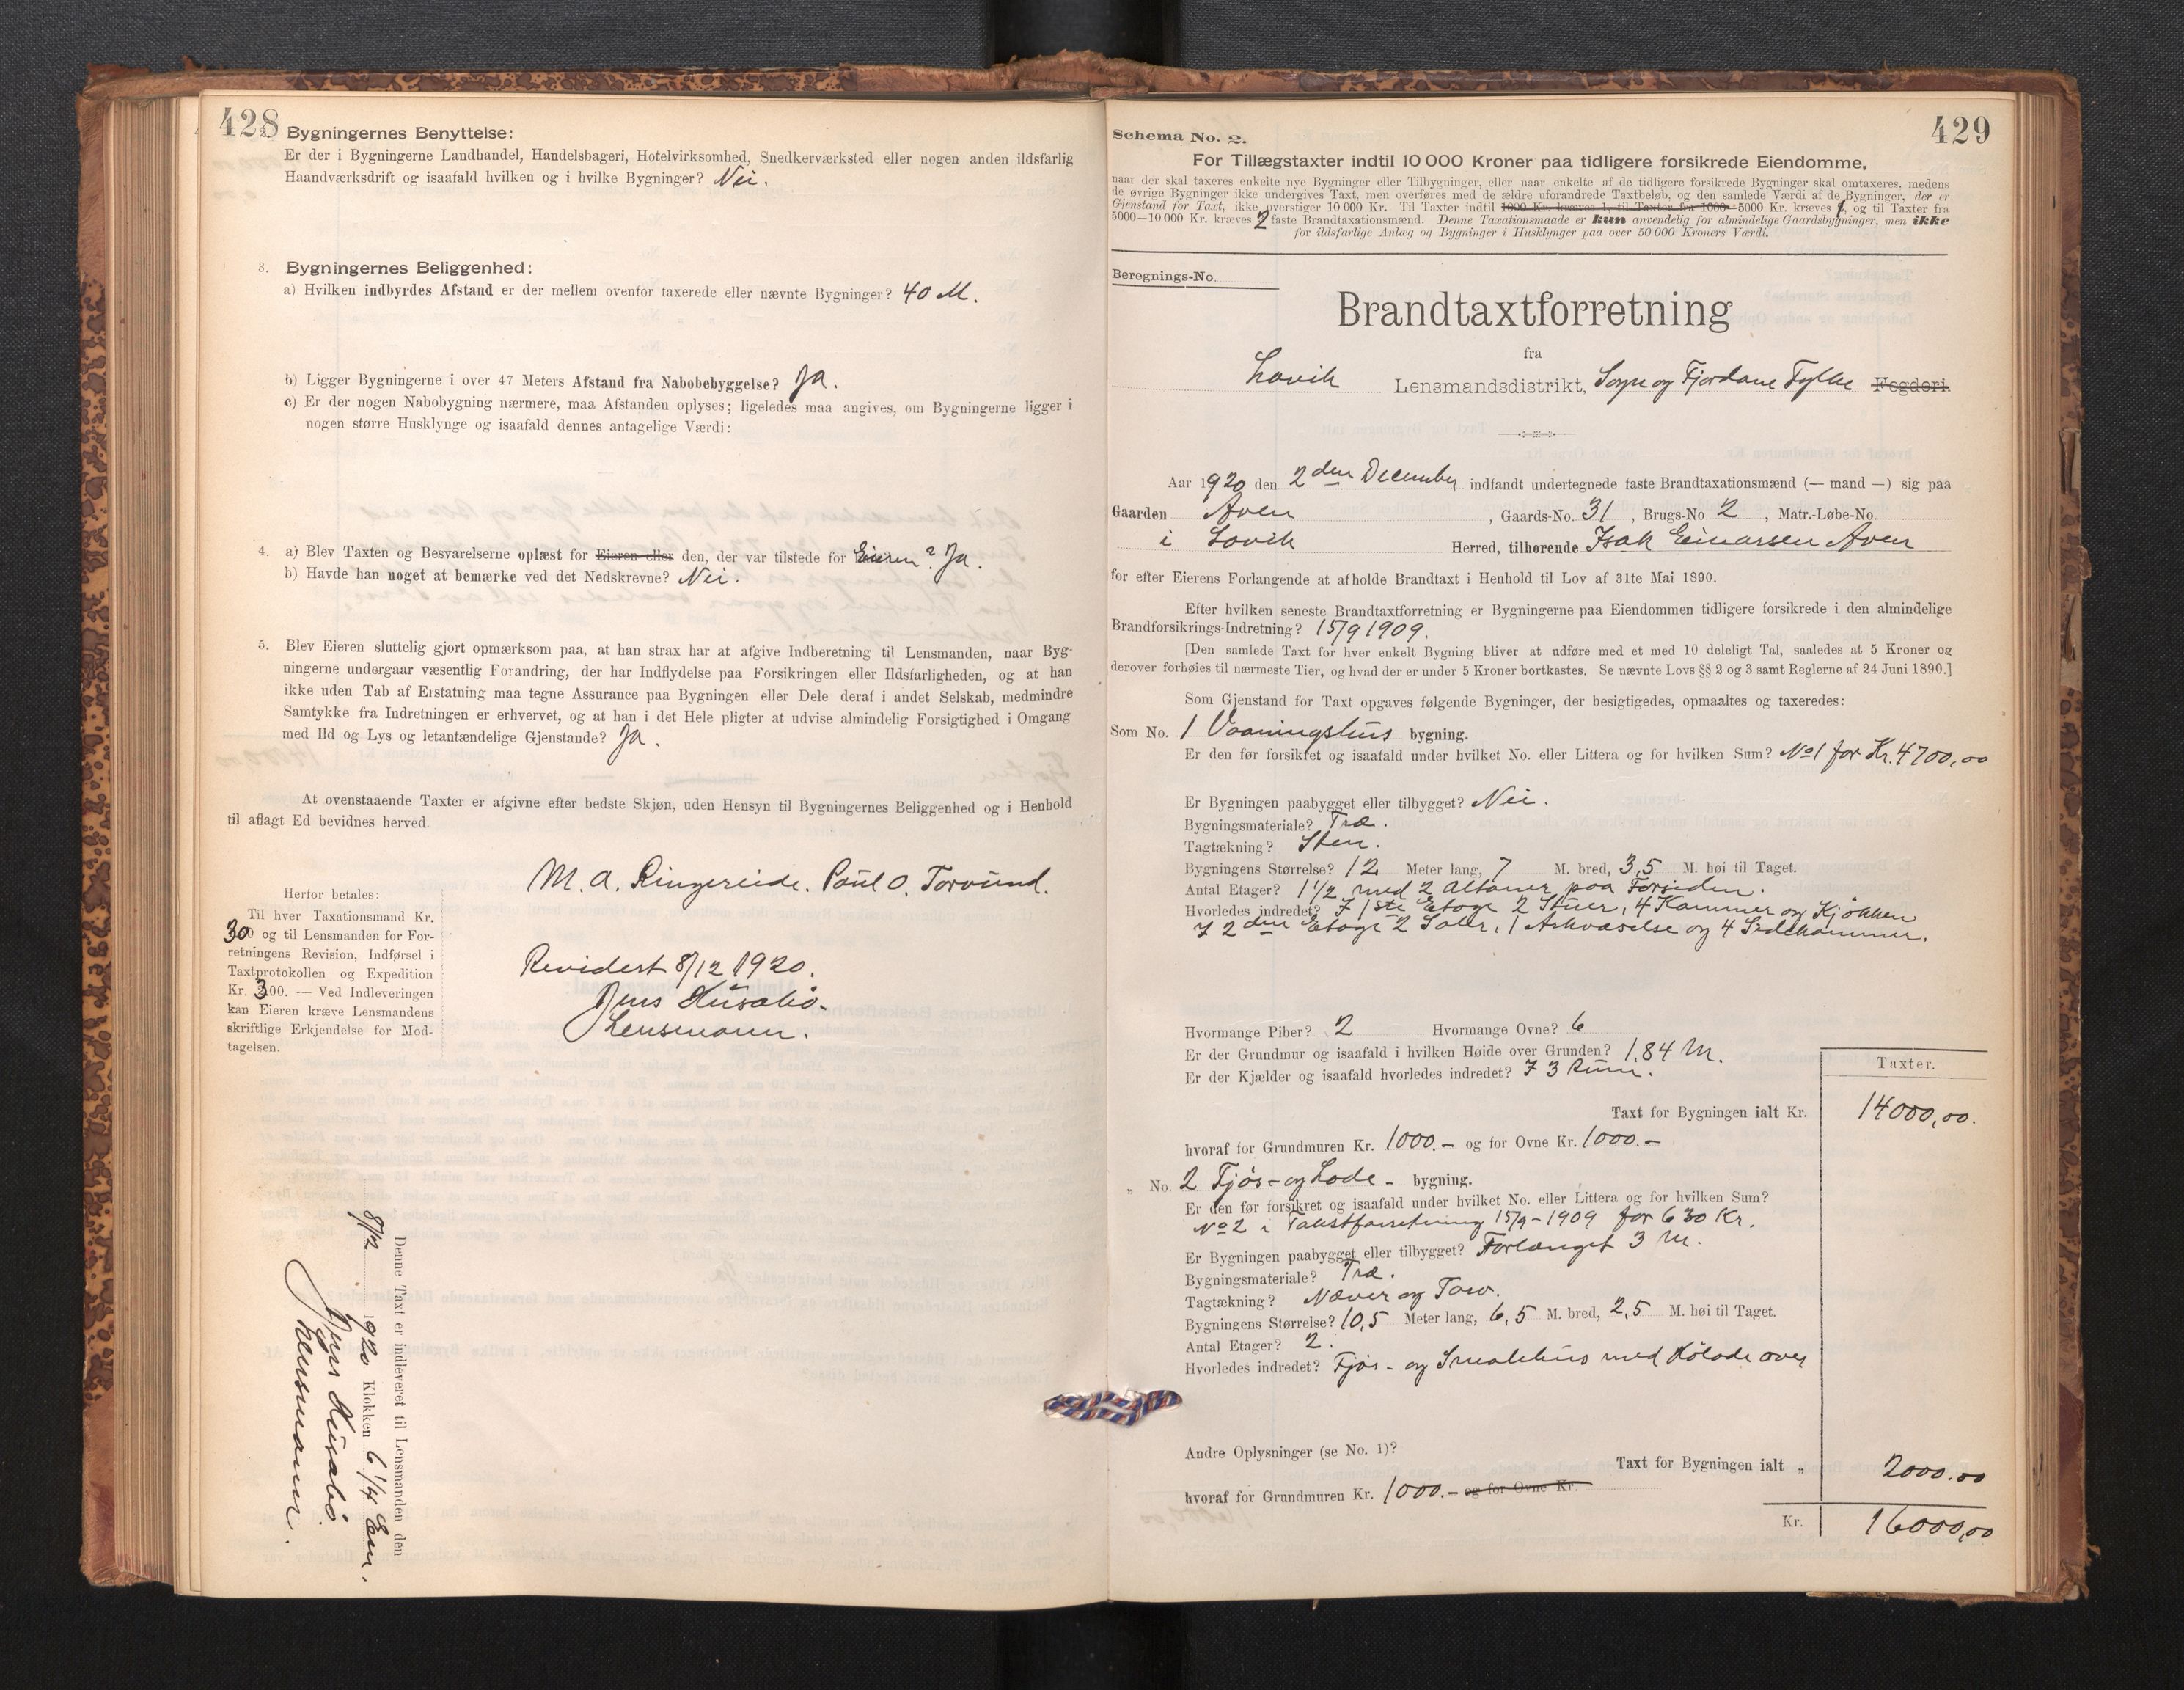 428
Bygningernes Benyttelse:
Er der i Bygningerne Landhandel, Handelsbageri, Hotelvirksomhed, Snedkerværksted eller nogen anden ildsfarlig
Haandværksdrift og isaafald hvilken og i hvilke Bygninger? Nei.
3. Bygningernes Beliggenhed:
a) Hvilken indbyrdes Afstand er der mellem ovenfor taxerede eller nævnte Bygninger? 40 M.
b) Ligger Bygningerne i over 47 Meters Afstand fra Nabobebyggelse? Ja.
c) Er der nogen Nabobygning nærmere, maa Afstanden oplyses; ligeledes maa angives, om Bygningerne ligger i
nogen større Husklynge og isaafald dennes antagelige Værdi:
4. a) Blev Taxten og Besvarelserne oplæst for Eieren eller den, der var tilstede for Eieren? Ja.
b) Havde han noget at bemærke ved det Nedskrevne? Nei.
5. Blev Eieren sluttelig gjort opmærksom paa, at han strax har at afgive Indberetning til Lensmanden, naar Byg-
ningerne undergaar væsentlig Forandring, der har Indflydelse paa Forsikringen eller Ildsfarligheden, og at han
ikke uden Tab af Erstatning maa tegne Assurance paa Bygningen eller Dele deraf i andet Selskab, medmindre
Samtykke fra Indretningen er erhvervet, og at han i det Hele pligter at udvise almindelig Forsigtighed i Omgang
med Ild og Lys og letantændelige Gjenstande? Ja.
At ovenstaaende Taxter er afgivne efter bedste Skjøn, uden Hensyn til Bygningernes Beliggenhed og i Henhold
til aflagt Ed bevidnes herved.
M. A. Ringereide. Paul O. Torvund.
Herfor betales:
Til hver Taxationsmand Kr.
30 og til Lensmanden for For-
retningens Revision, Indførsel i
Taxtprotokollen og Expedition
Kr. 3.00. — Ved Indleveringen
kan Eieren kræve Lensmandens
skriftlige Erkjendelse for Mod-
tagelsen.
Revidert 8/12 1920.
Jens Husabø.
Lensmann.
Denne Taxt er indleveret til Lensmanden den
8/12 1920 Klokken 6 1/4 Em.
Jens Husabø.
Lensmann.
429
Schema No. 2.
For Tillægstaxter indtil 10 000 Kroner paa tidligere forsikrede Eiendomme,
naar der skal taxeres enkelte nye Bygninger eller Tilbygninger, eller naar enkelte af de tidligere forsikrede Bygninger skal omtaxeres, medens
de øvrige Bygninger ikke undergives Taxt, men overføres med de ældre uforandrede Taxtbeløb, og den samlede Værdi af de Bygninger, der er
Gjenstand for Taxt, ikke overstiger 10 000 Kr. Til Taxter indtil 1000 Kr. kræves 1, til Taxter fra 1000-5000 Kr. kræves 1, og til Taxter fra
5000—10 000 Kr. kræves 2 faste Brandtaxationsmænd. Denne Taxationsmaade er kun anvendelig for almindelige Gaardsbygninger, men ikke
for ildsfarlige Anlæg og Bygninger i Husklynger paa over 50 000 Kroners Værdi.
Beregnings-No.
Brandtaxtforretning
fra
Lavik Lensmandsdistrikt, Sogn og Fjordane Fylke Fogderi.
Aar 1920 den 2den December indfandt undertegnede faste Brandtaxationsmænd (— mand —) sig paa
Gaarden Aven, Gaards-No. 31, Brugs-No. 2, Matr.-Løbe-No.
i Lavik Herred, tilhørende Isak Einarsen Aven
for efter Eierens Forlangende at afholde Brandtaxt i Henhold til Lov af 31te Mai 1890.
Efter hvilken seneste Brandtaxtforretning er Bygningerne paa Eiendommen tidligere forsikrede i den almindelige
Brandforsikrings-Indretning? 15/9 1909.
[Den samlede Taxt for hver enkelt Bygning bliver at udføre med et med 10 deleligt Tal, saaledes at 5 Kroner og
derover forhøies til nærmeste Tier, og hvad der er under 5 Kroner bortkastes. Se nævnte Lovs §§ 2 og 3 samt Reglerne af 24 Juni 1890.]
Som Gjenstand for Taxt opgaves følgende Bygninger, der besigtigedes, opmaaltes og taxeredes:
Som No. 1 Vaaningshus bygning.
Er den før forsikret og isaafald under hvilket No. eller Littera og for hvilken Sum? No 1 for Kr. 4700,00
Er Bygningen paabygget eller tilbygget? Nei.
Bygningsmateriale? Træ.
Tagtækning? Sten.
Bygningens Størrelse? 12 Meter lang, 7 M. bred, 3,5 M. høi til Taget.
Antal Etager? 1 1/2 med 2 Altaner paa Forsiden.
Hvorledes indredet? I 1ste Etage 2 Stuer, 4 Kammer og Kjøkken
I 2den Etage 2 Saler, 1 Arkværelse og 4 Sidekammer.
Hvormange Piber? 2 Hvormange Ovne? 6
Er der Grundmur og isaafald i hvilken Høide over Grunden? 1,84 M.
Er der Kjælder og isaafald hvorledes indredet? I 3 Rum.
Taxter.
Taxt for Bygningen ialt Kr. 14000,00.
hvoraf for Grundmuren Kr. 1000.- og for Ovne Kr. 1000.-
„ No. 2 Fjøs- og Lade- bygning.
Er den før forsikret og isaafald under hvilket No. eller Littera og for hvilken Sum?
No 2 i Takstforretning 15/9-1909 for 630 Kr.
Er Bygningen paabygget eller tilbygget? Forlænget 3 M.
Bygningsmateriale? Træ.
Tagtækning? Næver og Torv.
Bygningens Størrelse? 10,5 Meter lang, 6,5 M. bred, 2,5 M. høi til Taget.
Antal Etager? 2.
Hvorledes indredet? Fjøs- og Smalehus med Hølade over
Andre Oplysninger (se No. 1)?
Taxt for Bygningen ialt „ 2000.00
hvoraf for Grundmuren Kr. 1000.- og for Ovne Kr.
Kr. 16000,00